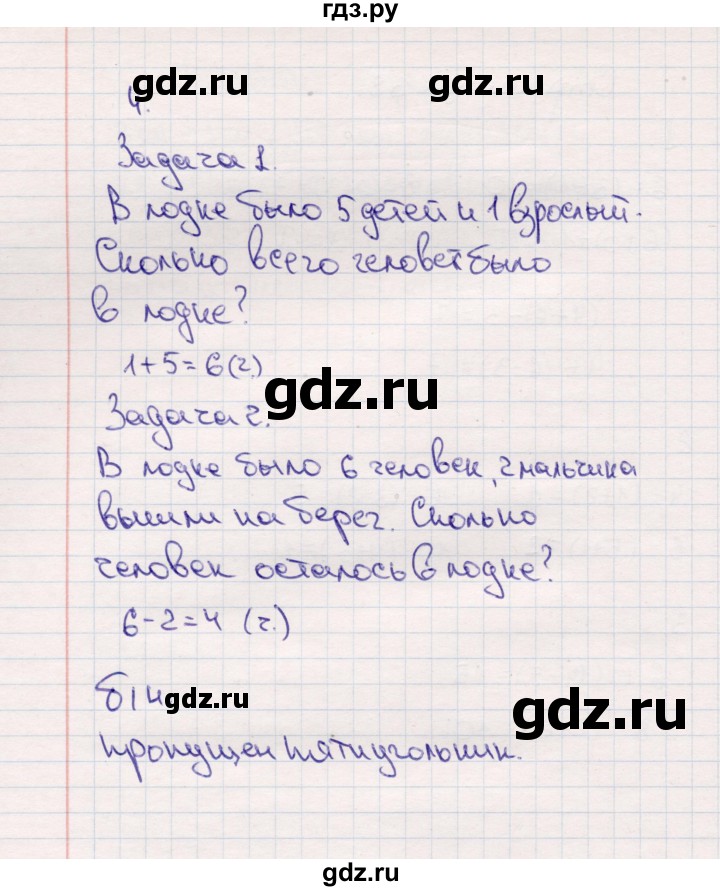 гдз.ру
gdz.ru gdz.ru
4.
Задача 1.
В лодке было 5 детей и 1 взрослый.
Сколько всего человек было
в лодке?
1+5=6(ч.)
gdz.ru
Задача 2.
В лодке было 6 человек, 2 мальчика
вышли на берег. Сколько
человек осталось в лодке?
6-2=4 (ч.)
gdz.ru
gdz.ru
пропущен пятиугольник.
gdz.ru